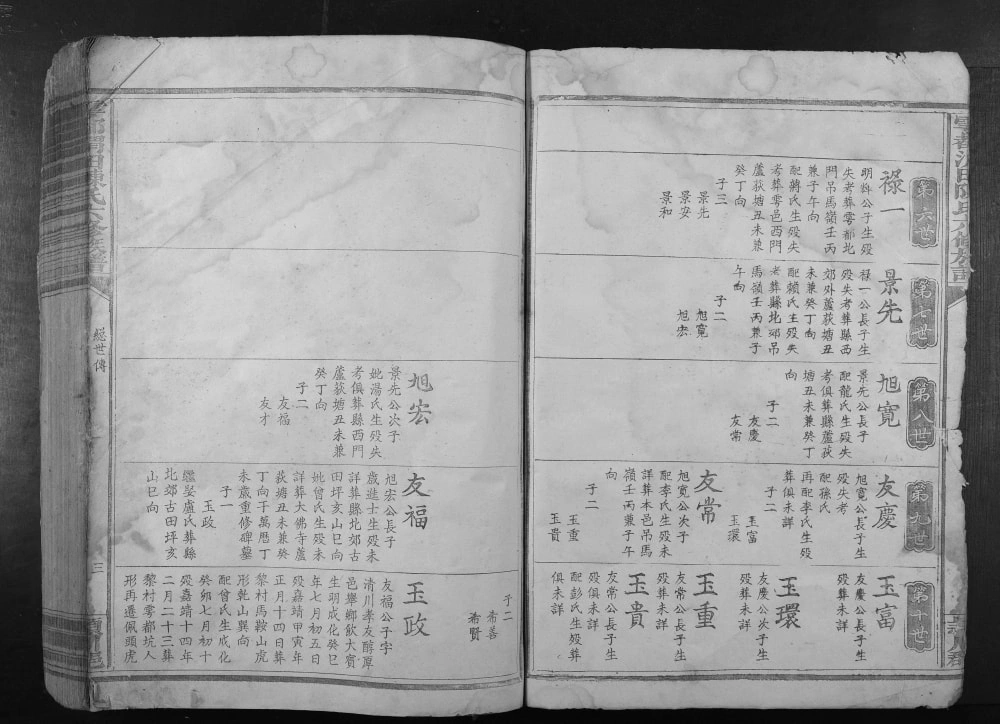 第六世
祿一
明料公子生歿
失考葬雩都北
門吊馬嶺壬丙
兼子午向
配韓氏生歿失
考葬雩邑西門
蘆荻塘丑未兼
癸丁向
子三
景先
景安
景和
第七世
景先
祿一公長子生
歿失考葬縣西
郊外蘆荻塘丑
未兼癸丁向
配賴氏生歿失
考葬縣北郊吊
馬嶺壬丙兼子
午向
子二
旭寬
旭宏
第八世
旭寬
景先公長子生
配龍氏生歿失
考俱葬縣蘆荻
塘丑未兼癸丁
向
子二
友慶
友常
第九世
友慶
旭寬公長子生
歿失考
配孫氏
再配李氏生歿
葬俱未詳
子二
玉富
玉環
友常
旭寬公次子
配李氏生歿未
詳葬本邑吊馬
嶺壬丙兼子午
向
子二
玉重
玉貴
第十世
玉富
友慶公長子生
歿葬未詳
玉環
友慶公次子生
歿葬未詳
玉重
友常公長子生
歿葬未詳
玉貴
友常公子生
歿俱未詳
配彭氏生歿葬
俱未詳
旭宏
景先公次子
妣湯氏生歿失
考俱葬縣西門
蘆荻塘丑未兼
癸丁向
子二
友福
友才
友福
旭宏公長子
歲進士生歿未
詳葬縣北郊古
田坪亥山巳向
妣曾氏生歿未
詳葬大佛寺蘆
荻塘丑未兼癸
丁向于萬曆丁
未歲重修碑墓
子一
玉政
繼娶盧氏葬縣
北郊古田坪亥
山巳向
子二
希善
希賢
玉政
友福公子字
清川孝友醇厚
邑舉鄉飲大賓
生明成化癸巳
年七月初五日
歿嘉靖甲寅年
正月十四日葬
黎村馬鞍山虎
形乾山巽向
配曾氏生成化
癸卯七月初十
歿嘉靖十四年
二月二十三葬
黎村雩都坑人
形再遷佩頭虎
總世傳
三